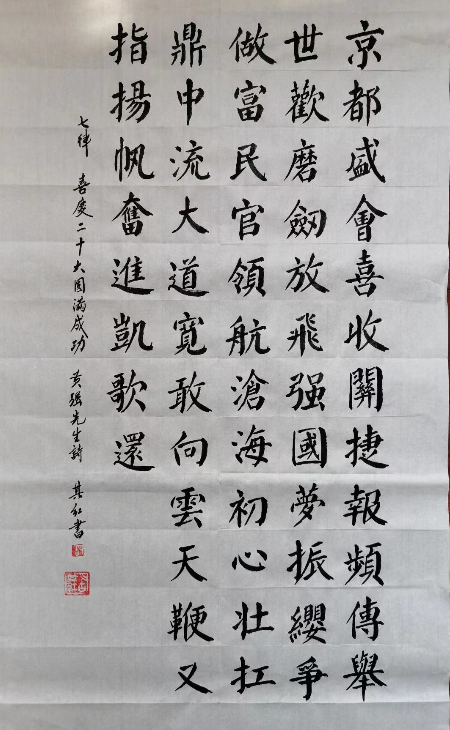 京都盛會喜收關捷報頻傳舉
世歡磨劒放飛强國夢振纓爭
做富民官領航滄海初心壮扛
鼎中流大道寬敢向雲天鞭又
指揚帆奮進凱歌還
七律 喜慶二十大圆满成功 黄强先生詩 其红書